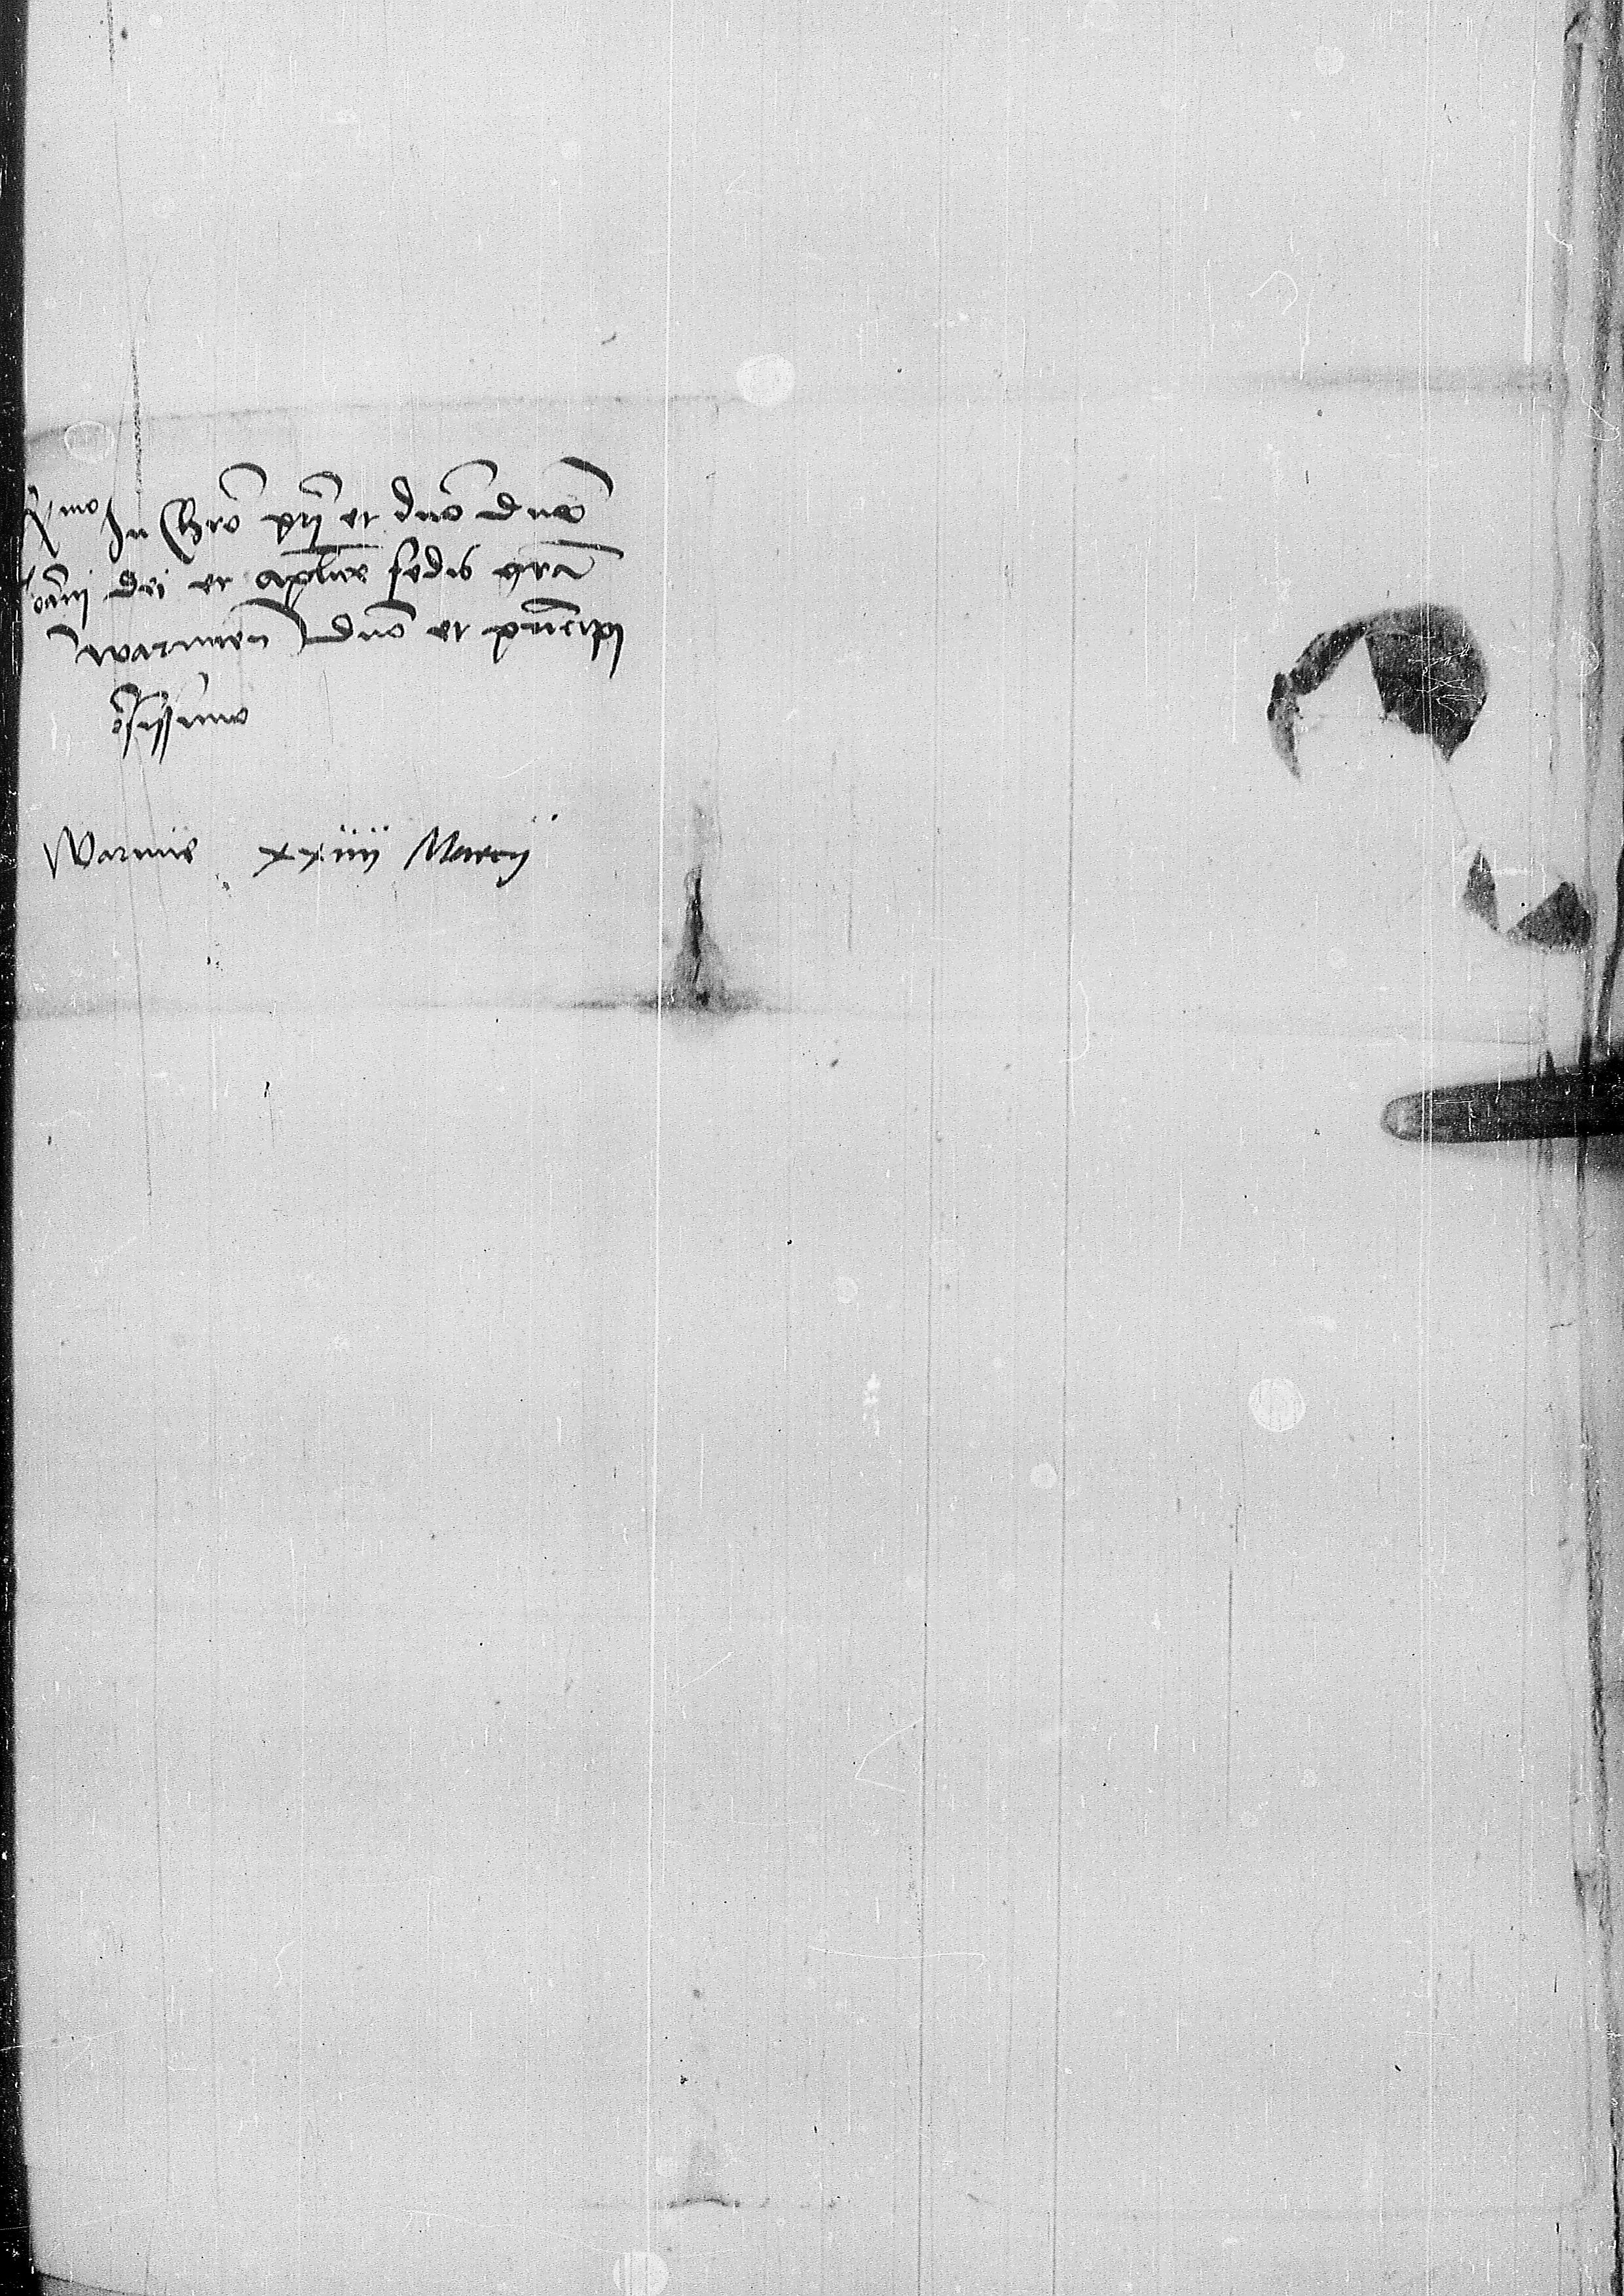 R͞mo In Chro͞ pr͞i et dno͞ dn͞o
oa͞ni dei et apl͞ice sedis gra͞
warmien͞ Dno͞ et prin͞cipi
o͞sissimo
Warmie xxiiii Marcÿ